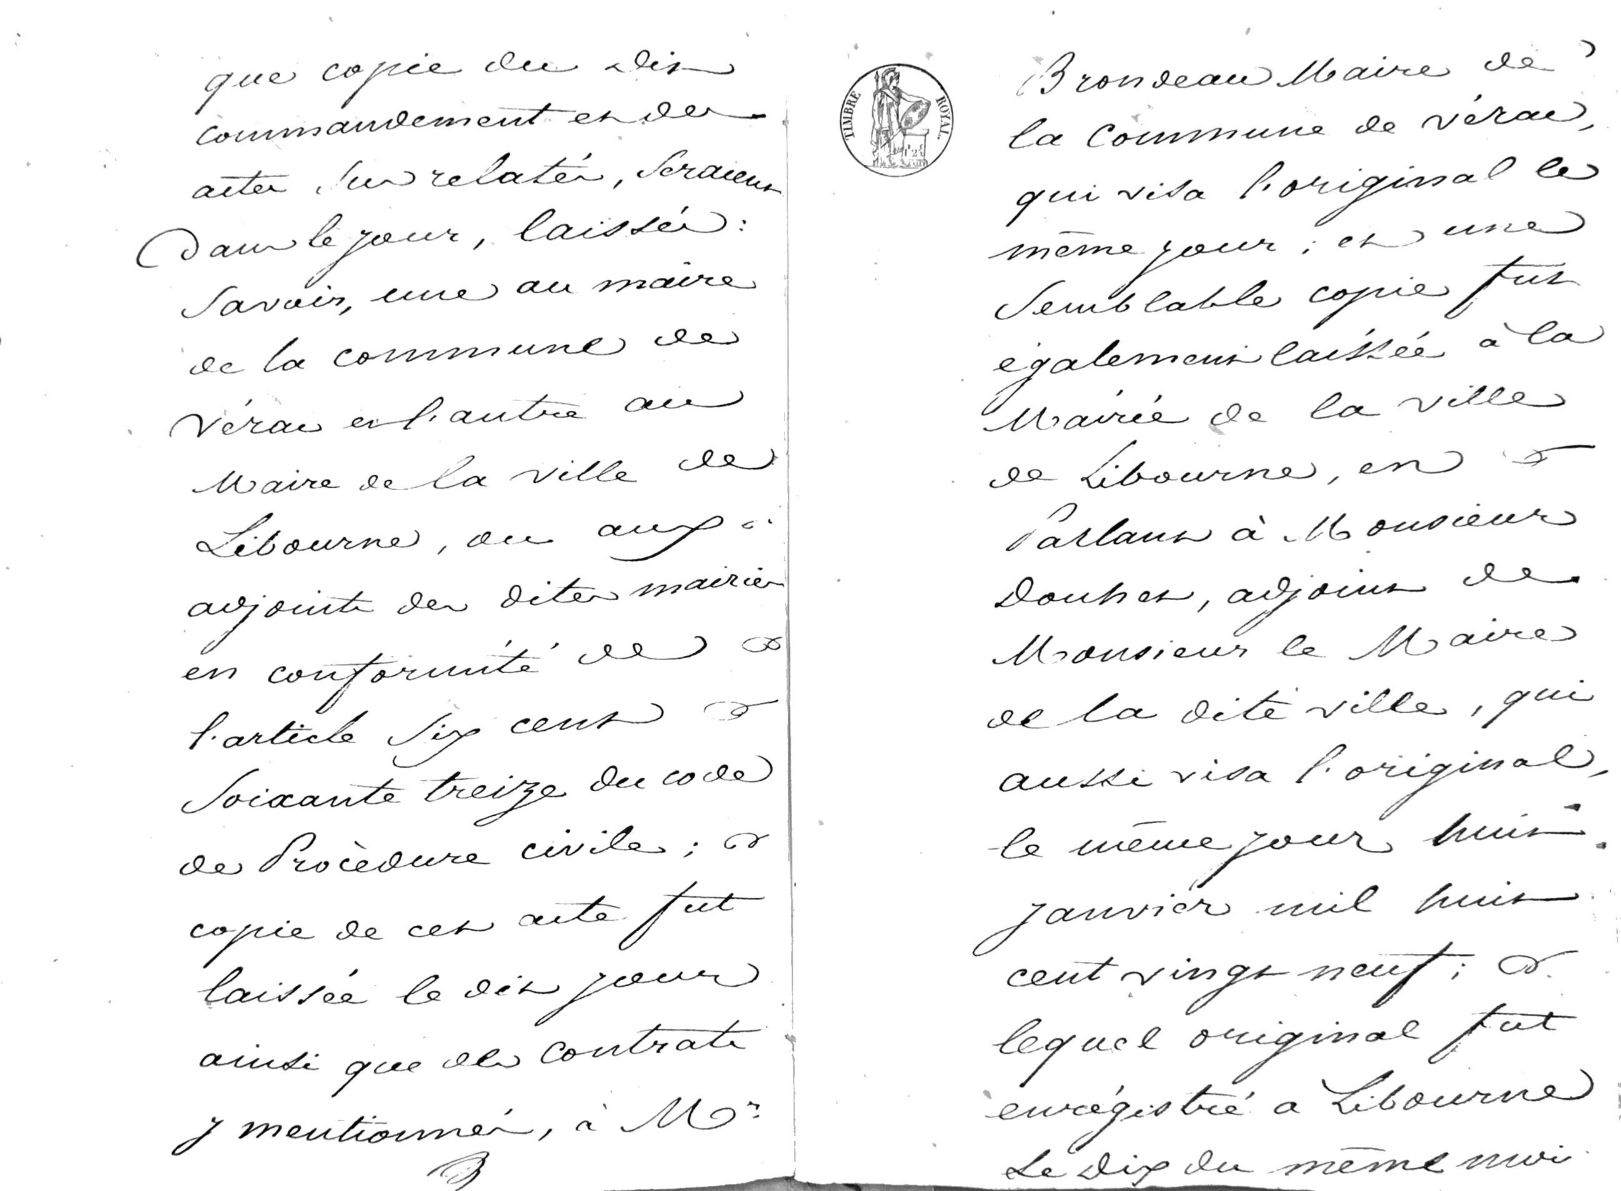 que copie du dit
commandement et des
actes sus relatés, seraient
dans le jour, laissées :
savoir, une au maire
de la commune de
vérac et l'autre au
Maire de la ville de
Libourne, ou aux
adjoints des dites mairies
en conformité de
l'article six cent
soixante treize du code
de Procèdure civile ;
copie de cet acte fut
laissée le dit jour
ainsi que des contrats
y mentionnés, à Mr
TIMBRE ROYAL.
Brondeau Maire de
la Commune de vérac,
qui visa l'original le
même jour ; et une
semblable copie fut
également laissée à la
Mairie de la ville
de Libourne, en
Parlant à Monsieur
adjoint de
Monsieur le Maire
de la dite ville, qui
aussi visa l'original,
le même jour huit
janvier mil huit
cent vingt neuf ;
lequel original fut
enrégistré a Libourne
Le dix du même mois